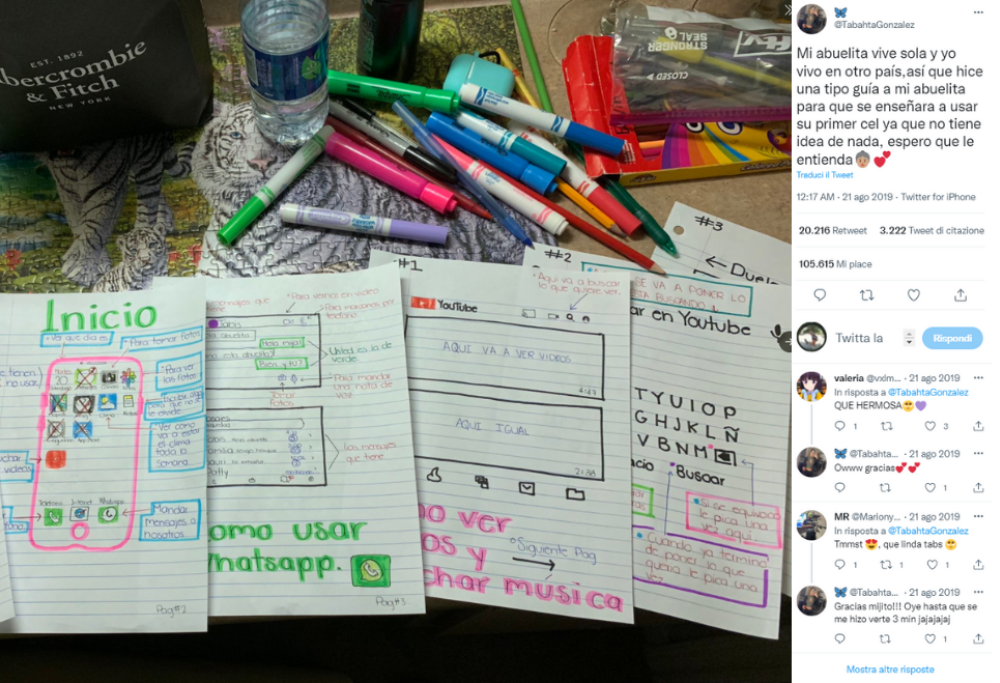 EST. 1892
bercrombie
& Fitch
NEW YORK
STRONGER
SEAL
CLOSED
#1
#2
#3
Inicio
Para tomar fotos
Para ver
las fotos
Ver como
va a estar
el clima
toda la
semana
Mandar
mensajes a
nosotros
Pag#2
Para mandar
una nota de
voz
Tomar
fotos
Usted es la de
verde
Los mensajes
que tiene
omo usar
hatsapp.
Pag#3
YouTube
Aqui va a buscar
lo que quiere ver.
AQUI VA A VER VIDEOS
4:23
AQUI IGUAL
2:38
o ver
os y
char música
Siguiente Pag
SE VA A PONER LO
ar en Youtube
T Y U I O P
G H J K L Ñ
V B N M
acio
Buscar
Si se equivoca
le pica una
vez aqui.
Cuando ya termino
de poner lo que
queria le pica una
vez
@TabahtaGonzalez
Mi abuelita vive sola y yo
vivo en otro país,así que hice
una tipo guía a mi abuelita
para que se enseñara a usar
su primer cel ya que no tiene
idea de nada, espero que le
entienda👵🏼💕
Traduci il Tweet
12:17 AM · 21 ago 2019 · Twitter for iPhone
20.216 Retweet 3.222 Tweet di citazione
105.615 Mi piace
Twitta la
Rispondi
valeria @vxlm... · 21 ago 2019
In risposta a @TabahtaGonzalez
QUE HERMOSA🥺💜
1 3
🦋 @Tabahta... · 21 ago 2019
Owww gracias💕💕
1
MR @Mariony... · 21 ago 2019
In risposta a @TabahtaGonzalez
Tmmst 😍, que linda tabs 🥺
1 1 1
🦋 @Tabahta... · 21 ago 2019
Gracias mijito!!! Oye hasta que se
me hizo verte 3 min jajajajaj
1
Mostra altre risposte